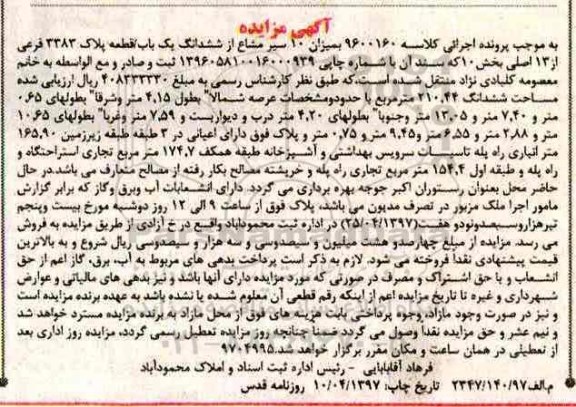 آگهی مزایده
به موجب پرونده اجرائی کلاسه ۹۶۰۰۱۶۰ بمیزان ۱۰ سیر مشاع از ششدانگ یک باب/قطعه پلاک ۳۳۸۳ فرعی
از ۱۳ اصلی بخش ۱۰که سند آن با شماره چاپی ۱۳۹۶۰۵۸۱۰۰۱۶۰۰۰۹۳۹ ثبت و صادر و مع الواسطه به خانم
معصومه کلبادی نژاد منتقل شده است،که طبق نظر کارشناس رسمی به مبلغ ۴۰۸۳۳۳۳۳۰ ریال ارزیابی شده
مساحت ششدانگ ۲۱۰،۴۴ مترمربع با حدودومشخصات عرصه شمالا" بطول ۴،۱۵ متر وشرقا" بطولهای ۰،۶۵
متر و ۷،۴۰ متر و ۱۳،۰۵ متر وجنوبا" بطولهای ۴،۲۰ متر درب و دیواریست و ۷،۵۹ متر وغربا" بطولهای ۱۰،۶۵
متر و ۲،۸۸ متر و ۶،۵۵ متر و۹،۴۵ متر و ۰،۷۵ متر و پلاک فوق دارای اعیانی در ۳ طبقه طبقه زیرزمین ۱۶۵،۹۰
متر انباری راه پله تاسیسات سرویس بهداشتی و آشپزخانه طبقه همکف ۱۷۴،۷ متر مربع تجاری استراحتگاه و
راه پله و طبقه اول ۱۵۴،۴ متر مربع تجاری راه پله و خرپشته مصالح بکار رفته از مصالح متعارف می باشد.در حال
حاضر محل بعنوان رستوران اکبر جوجه بهره برداری می گردد. دارای انشعابات آب وبرق وگاز که برابر گزارش
مامور اجرا ملک مزبور در تصرف مدیون می باشد، پلاک فوق از ساعت ۹ الی ۱۲ روز دوشنبه مورخ بیست وپنجم
تیرهزاروسیصدونودو هفت(۲۵/۰۴/۱۳۹۷) در اداره ثبت محمودآباد واقع در خ آزادی از طریق مزایده به فروش
می رسد. مزایده از مبلغ چهارصدو هشت میلیون و سیصدوسی و سه هزار و سیصدوسی ریال شروع و به بالاترین
قیمت پیشنهادی نقداً فروخته می شود. لازم به ذکر است پرداخت بدهی های مربوط به آب، برق، گاز اعم از حق
انشعاب و یا حق اشتراک و مصرف در صورتی که مورد مزایده دارای آنها باشد و نیز بدهی های مالیاتی و عوارض
شهرداری و غیره تا تاریخ مزایده اعم از اینکه رقم قطعی آن معلوم شده یا نشده باشد به عهده برنده مزایده است
و نیز در صورت وجود مازاد، وجوه پرداختی بابت هزینه های فوق از محل مازاد به برنده مزایده مسترد خواهد شد
و نیم عشر و حق مزایده نقداً وصول می گردد ضمنا چنانچه روز مزایده تعطیل رسمی گردد، مزایده روز اداری بعد
از تعطیلی در همان ساعت و مکان مقرر برگزار خواهد شد.۹۷۰۴۹۹۵
فرهاد آقابابایی - رئیس اداره ثبت اسناد و املاک محمودآباد
م.الف۲۳۴۷/۱۴۰/۹۷ تاریخ چاپ: ۱۰/۰۴/۱۳۹۷ روزنامه قدس